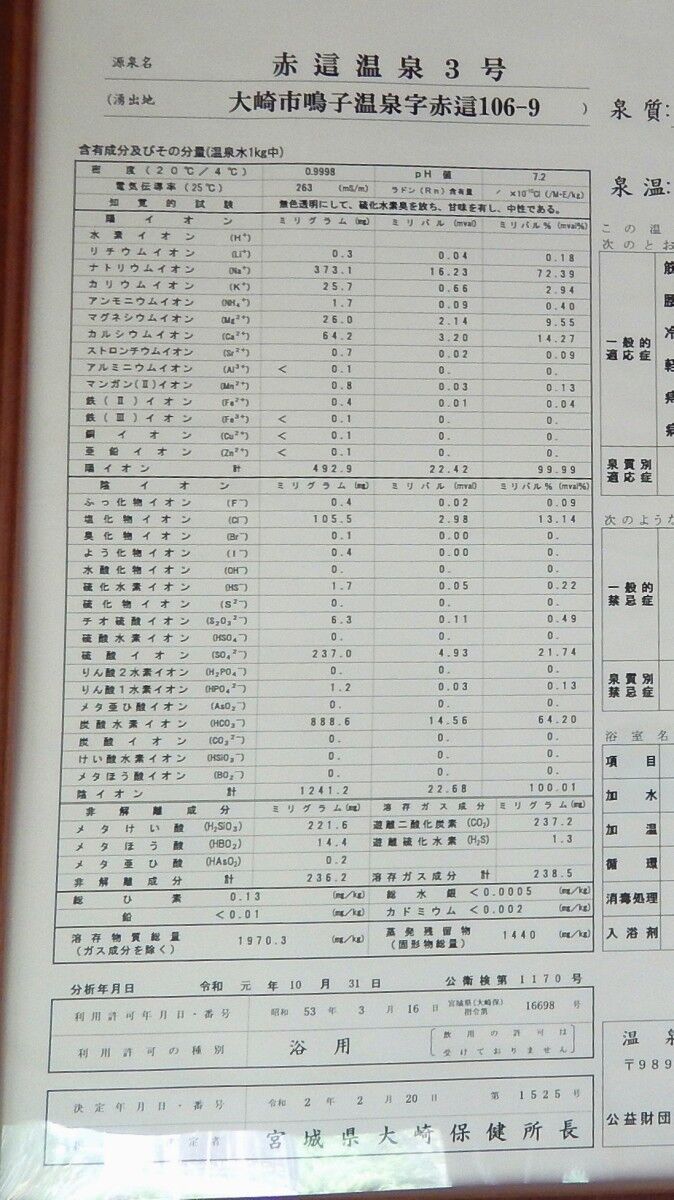 源泉名 赤這温泉3号
(湧出地 大崎市鳴子温泉字赤這106-9 )
泉質:
泉温:
含有成分及びその分量(温泉水1kg中)
密度(20℃/4℃) 0.9998 pH値 7.2
電気伝導率(25℃) 263 (mS/m) ラドン(Rn)含有量 / ×10⁻¹⁰Ci (/M・E/kg)
知覚的試験 無色透明にして、硫化水素臭を放ち、甘味を有し、中性である。
陽イオン ミリグラム(mg) ミリバル(mval) ミリバル%(mval%)
水素イオン (H⁺)
リチウムイオン (Li⁺) 0.3 0.04 0.18
ナトリウムイオン (Na⁺) 373.1 16.23 72.39
カリウムイオン (K⁺) 25.7 0.66 2.94
アンモニウムイオン (NH₄⁺) 1.7 0.09 0.40
マグネシウムイオン (Mg²⁺) 26.0 2.14 9.55
カルシウムイオン (Ca²⁺) 64.2 3.20 14.27
ストロンチウムイオン (Sr²⁺) 0.7 0.02 0.09
アルミニウムイオン (Al³⁺) < 0.1 0. 0.
マンガン(Ⅱ)イオン (Mn²⁺) 0.8 0.03 0.13
鉄(Ⅱ)イオン (Fe²⁺) 0.4 0.01 0.04
鉄(Ⅲ)イオン (Fe³⁺) < 0.1 0. 0.
銅イオン (Cu²⁺) < 0.1 0. 0.
亜鉛イオン (Zn²⁺) < 0.1 0. 0.
陽イオン計 492.9 22.42 99.99
陰イオン ミリグラム(mg) ミリバル(mval) ミリバル%(mval%)
ふっ化物イオン (F⁻) 0.4 0.02 0.09
塩化物イオン (Cl⁻) 105.5 2.98 13.14
臭化物イオン (Br⁻) 0.1 0.00 0.
よう化物イオン (I⁻) 0.4 0.00 0.
水酸化物イオン (OH⁻) 0. 0. 0.
硫化水素イオン (HS⁻) 1.7 0.05 0.22
硫化物イオン (S²⁻) 0. 0. 0.
チオ硫酸イオン (S₂O₃²⁻) 6.3 0.11 0.49
硫酸水素イオン (HSO₄⁻) 0. 0. 0.
硫酸イオン (SO₄²⁻) 237.0 4.93 21.74
りん酸2水素イオン (H₂PO₄⁻) 0. 0. 0.
りん酸1水素イオン (HPO₄²⁻) 1.2 0.03 0.13
メタ亜ひ酸イオン (AsO₂⁻) 0. 0. 0.
炭酸水素イオン (HCO₃⁻) 888.6 14.56 64.20
炭酸イオン (CO₃²⁻) 0. 0. 0.
けい酸水素イオン (HSiO₃⁻) 0. 0. 0.
メタほう酸イオン (BO₂⁻) 0. 0. 0.
陰イオン計 1241.2 22.68 100.01
非解離成分 ミリグラム(mg) 溶存ガス成分 ミリグラム(mg)
メタけい酸 (H₂SiO₃) 221.6 遊離二酸化炭素 (CO₂) 237.2
メタほう酸 (HBO₂) 14.4 遊離硫化水素 (H₂S) 1.3
メタ亜ひ酸 (HAsO₂) 0.2
非解離成分計 236.2 溶存ガス成分計 238.5
総ひ素 0.13 (mg/kg) 総水銀 <0.0005 (mg/kg)
鉛 <0.01 (mg/kg) カドミウム <0.002 (mg/kg)
溶存物質総量 1970.3 (mg/kg) 蒸発残留物 1440 (mg/kg)
(ガス成分を除く) (固形物総量)
分析年月日 令和元年10月31日 公衛検第1170号
利用許可年月日・番号 昭和53年3月16日 宮城県(大崎保)指令第 16698 号
利用許可の種別 浴用 [飲用の許可は受けておりません]
決定年月日・番号 令和2年2月20日 第1525号
定者 宮城県大崎保健所長
この温
次のとお
一般的
適応症
泉質別
適応症
次のような
一般的
禁忌症
泉質別
禁忌症
浴室名
項目
加水
加温
循環
消毒処理
入浴剤
温泉
〒989
公益財団